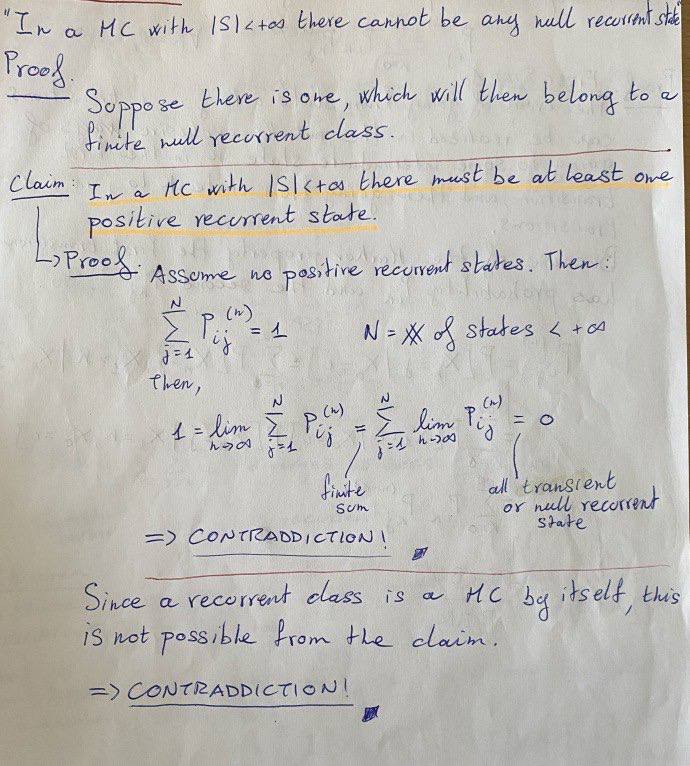 "In a MC with |S|<+∞ there cannot be any null recurrent state"
Proof.
Suppose there is one, which will then belong to a
finite null recurrent class.
Claim: In a MC with |S|<+∞ there must be at least one
positive recurrent state.
↳ Proof. Assume no positive recurrent states. Then:
∑_{j=1}^{N} P_{ij}^{(n)} = 1 N = # of states < +∞
Then,
1 = lim_{n→∞} ∑_{j=1}^{N} P_{ij}^{(n)} = ∑_{j=1}^{N} lim_{n→∞} P_{ij}^{(n)} = 0
finite
sum
all transient
or null recurrent
state
=> CONTRADDICTION!
Since a recurrent class is a MC by itself, this
is not possible from the claim.
=> CONTRADDICTION!